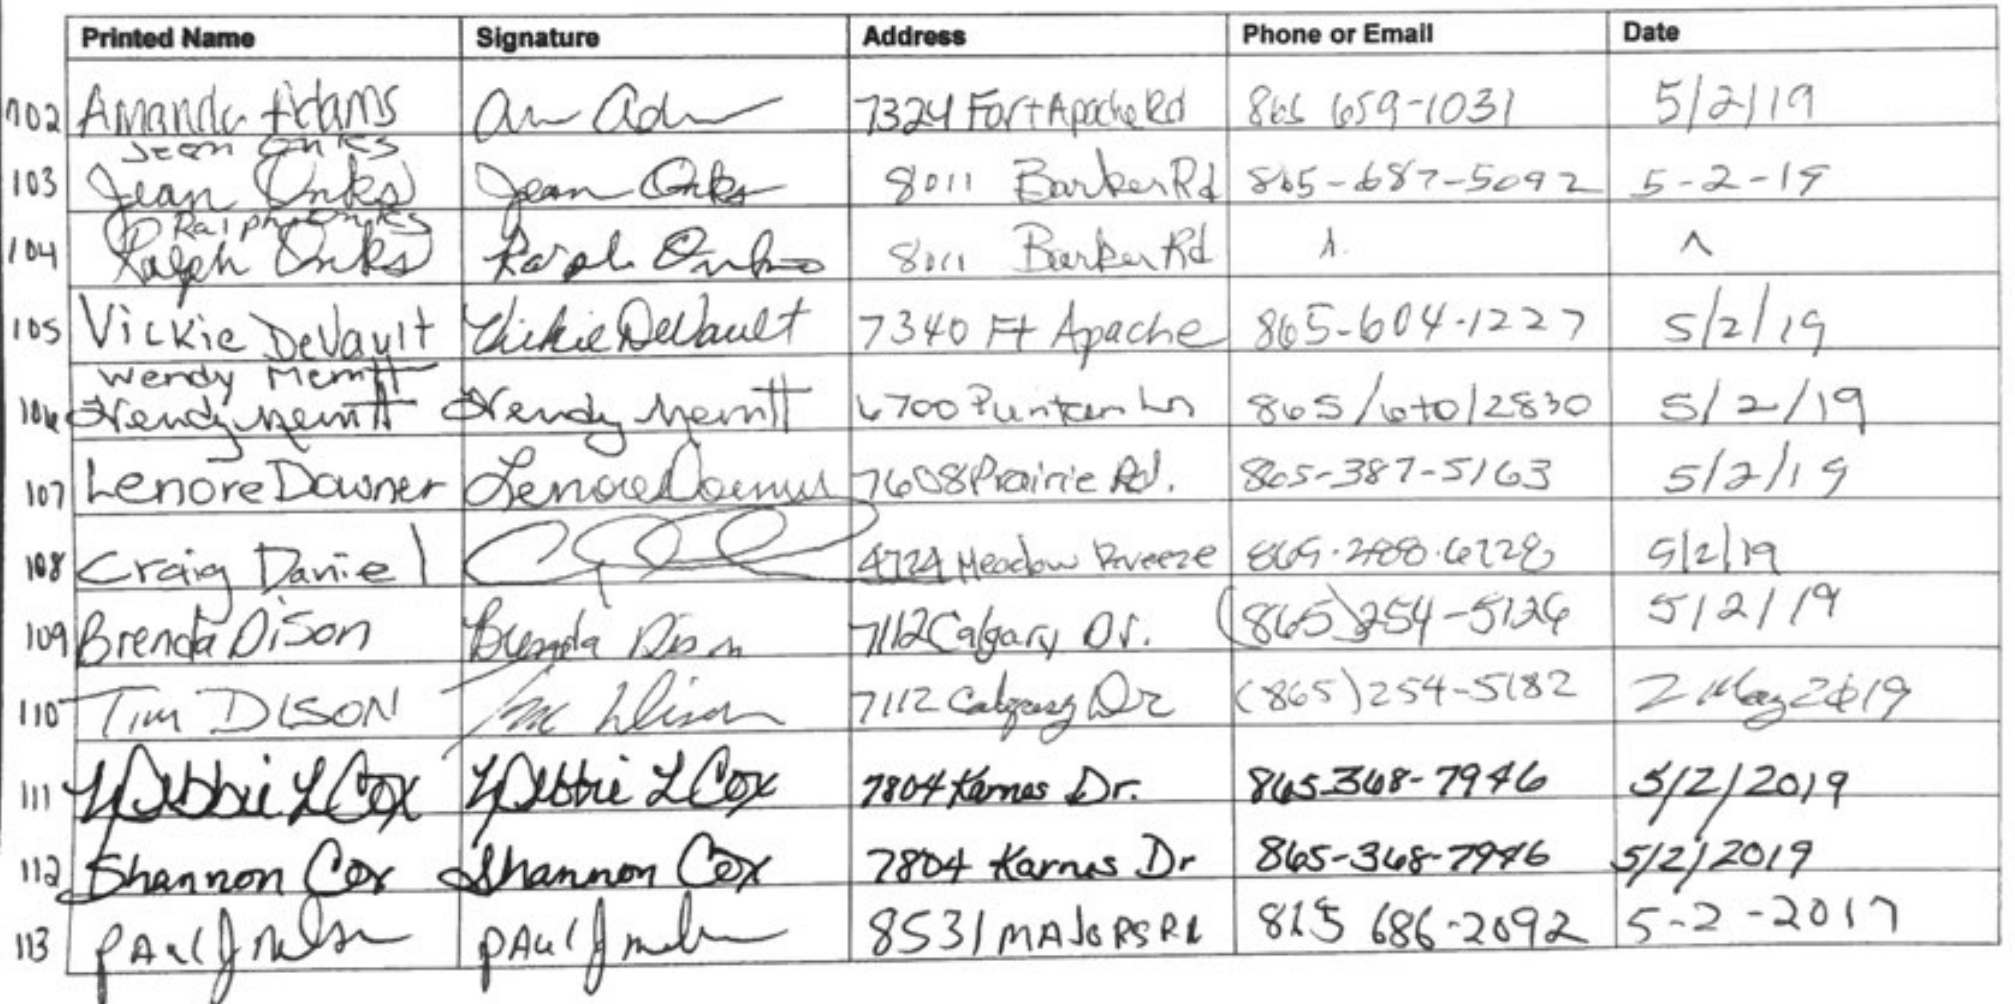 Printed Name Signature Address Phone or Email Date
102 Amanda Adams 7324 Fort Apache Rd 865 659-1031 5/2/19
Jean Onks
103 Jean Onks Jean Onks 8011 Barker Rd 865-687-5092 5-2-19
Ralph Onks
104 Ralph Onks Ralph Onks 8011 Barker Rd
105 Vickie DeVault Vickie DeVault 7340 Ft Apache 865-604-1227 5/2/19
Wendy Merritt
106 Wendy Merritt Wendy Merritt 6700 Ln 865/ /2830 5/2/19
107 Lenore Downer Lenore Downer 7608 Prairie Rd. 865-387-5163 5/2/19
108 Craig Daniel 4724 Meadow Breeze 5/2/19
109 Brenda Dison Brenda Dison 7112 Calgary Dr. (865)254-5126 5/2/19
110 Tim DISON Tim Dison 7112 Calgary Dr (865)254-5182 2 May 2019
111 Debbie L Cox Debbie L Cox 7804 Karnes Dr. 865-368-7946 5/2/2019
112 Shannon Cox Shannon Cox 7804 Karnes Dr 865-368-7946 5/2/2019
113 PAul J PAul J 8531 MAJORS Rd 686-2092 5-2-2017